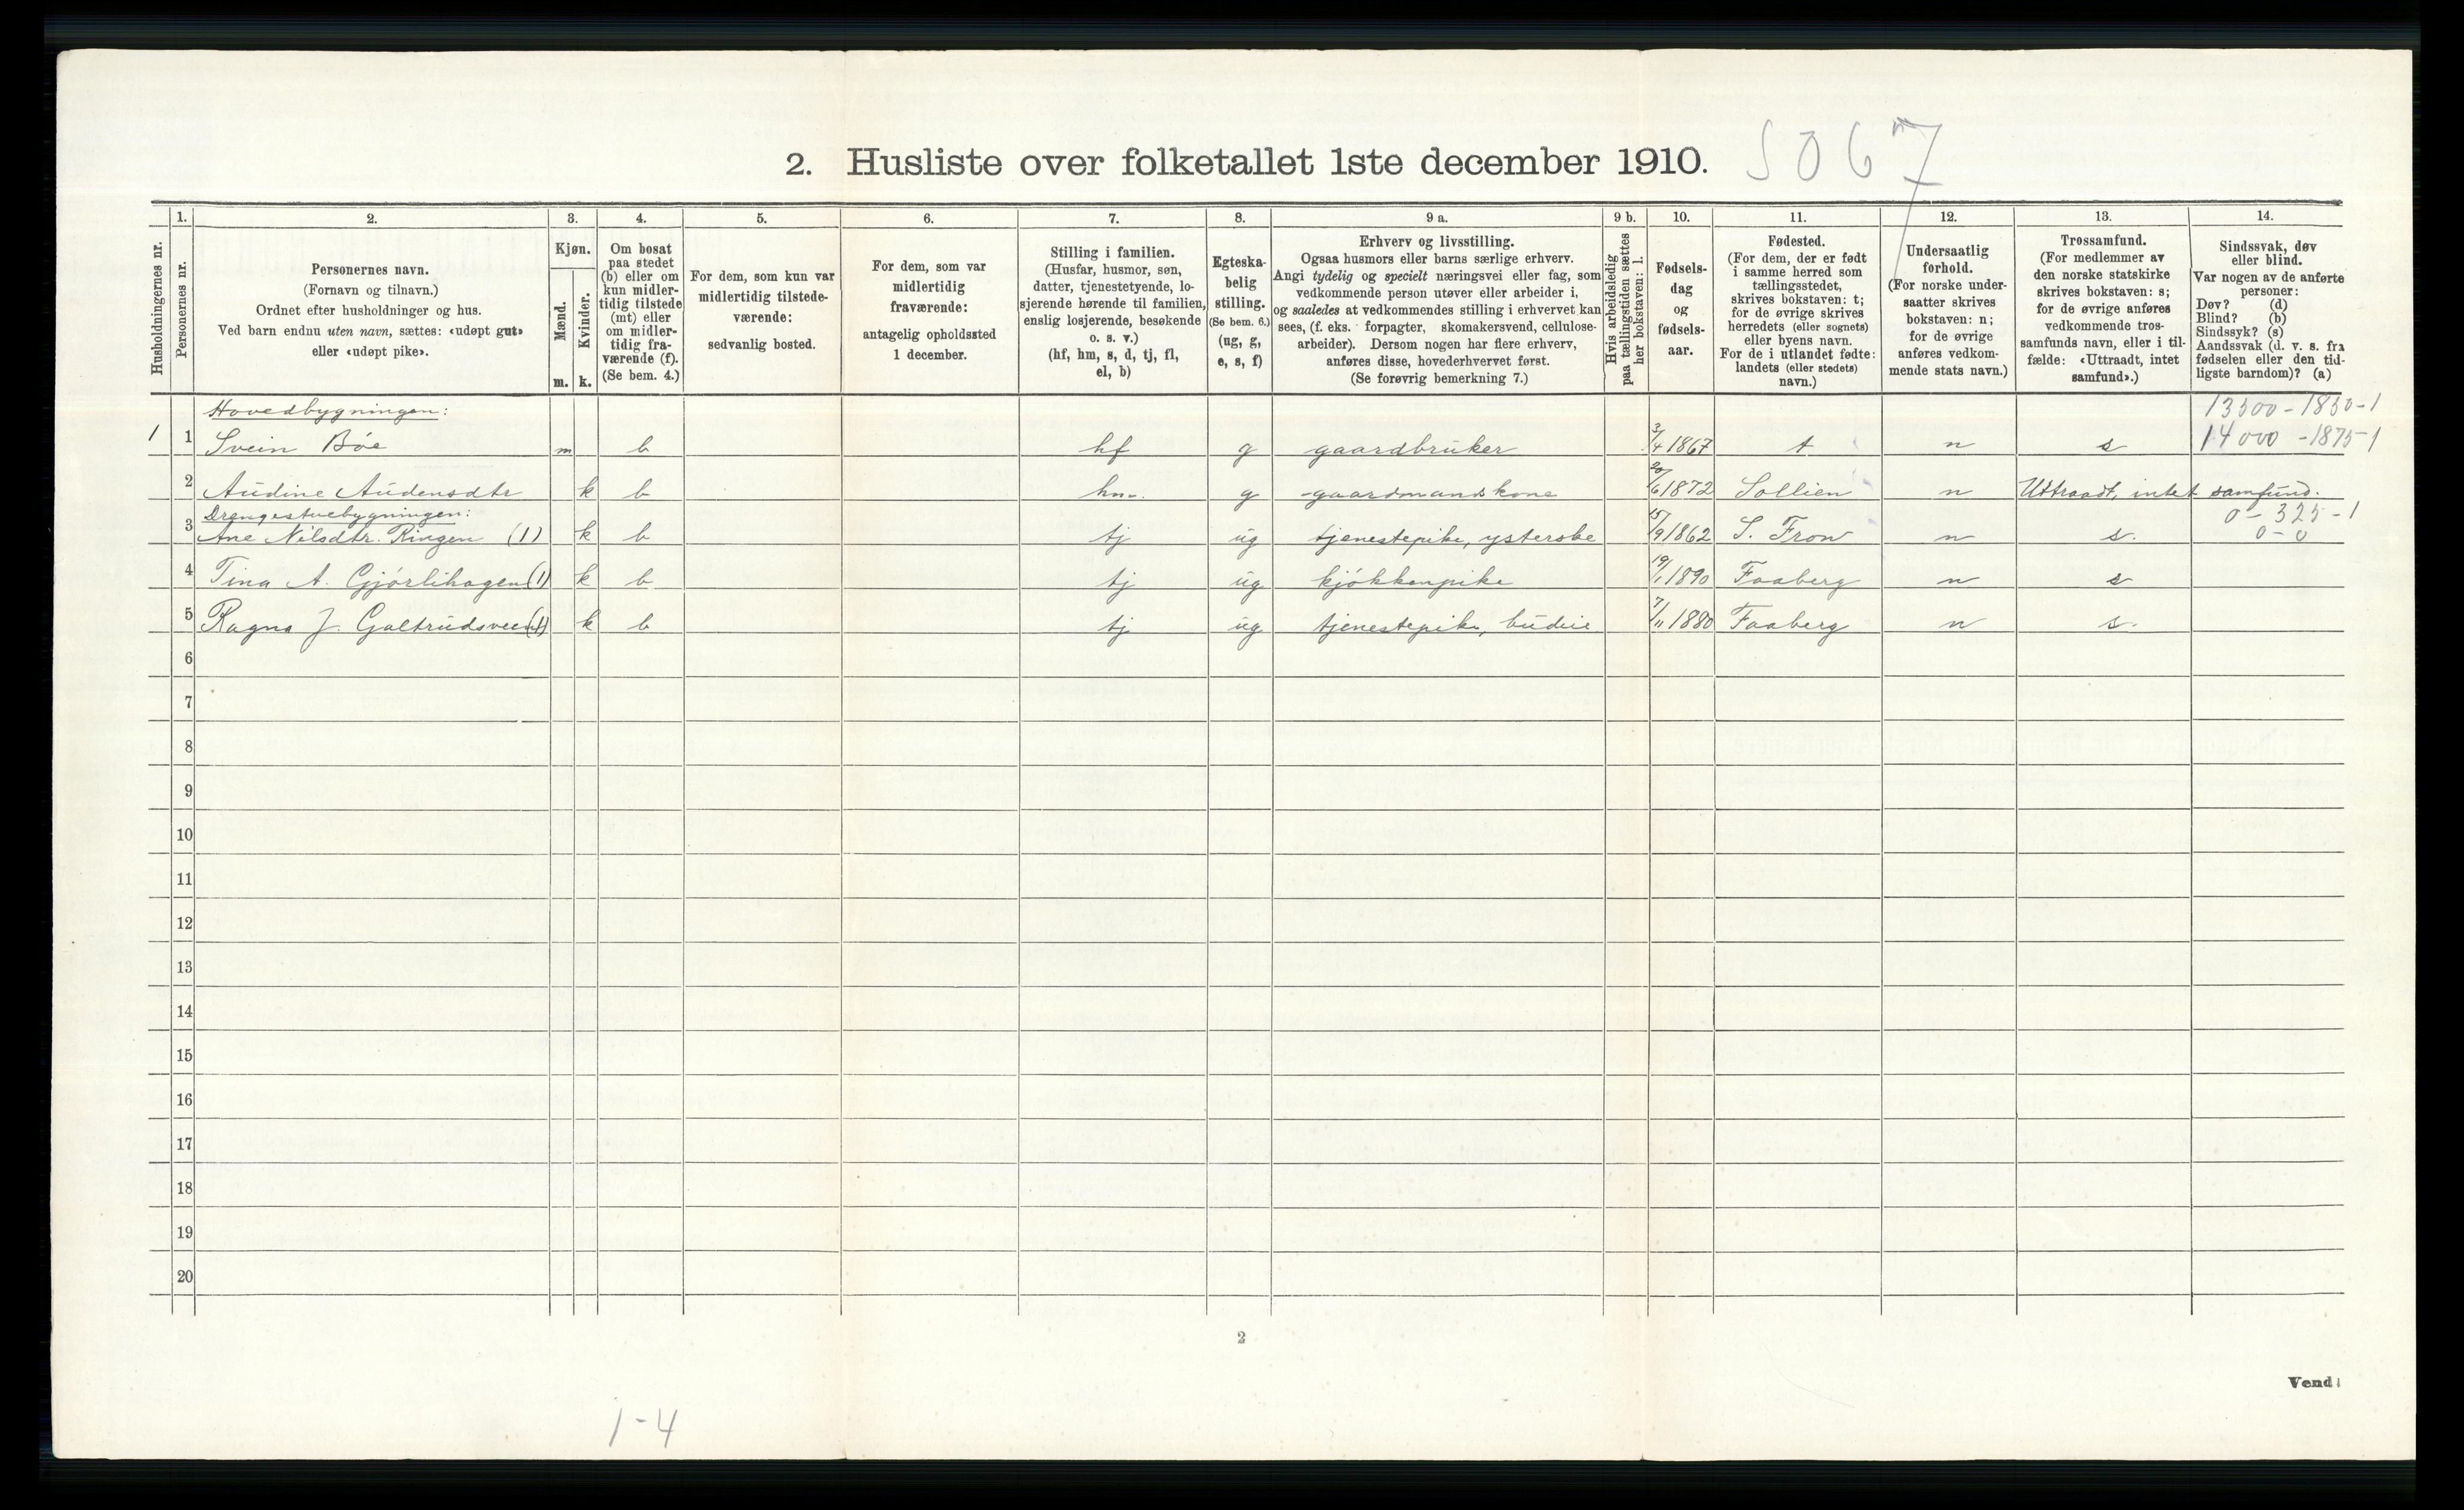 2. Husliste over folketallet 1ste december 1910. 5067
Husholdningernes nr.
1. Personernes nr.
2. Personernes navn.
(Fornavn og tilnavn.)
Ordnet efter husholdninger og hus.
Ved barn endnu uten navn, sættes: «udøpt gut»
eller «udøpt pike».
3. Kjøn.
Mænd. Kvinder.
m. k.
4. Om bosat
paa stedet
(b) eller om
kun midler-
tidig tilstede
(mt) eller
om midler-
tidig fra-
værende (f).
(Se bem. 4.)
5. For dem, som kun var
midlertidig tilstede-
værende:
sedvanlig bosted.
6. For dem, som var
midlertidig
fraværende:
antagelig opholdssted
1 december.
7. Stilling i familien.
(Husfar, husmor, søn,
datter, tjenestetyende, lo-
sjerende hørende til familien,
enslig losjerende, besøkende
o. s. v.)
(hf, hm, s, d, tj, fl,
el, b)
8. Egteska-
belig
stilling.
(Se bem. 6.)
(ug, g,
e, s, f)
9 a. Erhverv og livsstilling.
Ogsaa husmors eller barns særlige erhverv.
Angi tydelig og specielt næringsvei eller fag, som
vedkommende person utøver eller arbeider i,
og saaledes at vedkommendes stilling i erhvervet kan
sees, (f. eks. forpagter, skomakersvend, cellulose-
arbeider). Dersom nogen har flere erhverv,
anføres disse, hovederhvervet først.
(Se forøvrig bemerkning 7.)
9 b. Hvis arbeidsledig
paa tællingstiden sættes
her bokstaven: l.
10. Fødsels-
dag
og
fødsels-
aar.
11. Fødested.
(For dem, der er født
i samme herred som
tællingsstedet,
skrives bokstaven: t;
for de øvrige skrives
herredets (eller sognets)
eller byens navn.
For de i utlandet fødte:
landets (eller stedets)
navn.)
12. Undersaatlig
forhold.
(For norske under-
saatter skrives
bokstaven: n;
for de øvrige
anføres vedkom-
mende stats navn.)
13. Trossamfund.
(For medlemmer av
den norske statskirke
skrives bokstaven: s;
for de øvrige anføres
vedkommende tros-
samfunds navn, eller i til-
fælde: «Uttraadt, intet
samfund».)
14. Sindssvak, døv
eller blind.
Var nogen av de anførte
personer:
Døv? (d)
Blind? (b)
Sindssyk? (s)
Aandssvak (d. v. s. fra
fødselen eller den tid-
ligste barndom)? (a)
Hovedbygningen: 13500 - 1850-1
1 1 Svein Bøe m b hf g gaardbruker 3/4 1867 t n s 14000 - 1875-1
2 Audine Audensdtr k b hm g gaardmandskone 20/6 1872 Sollien n Uttraadt, intet samfund.
Drengestuebygningen: 0 - 325 - 1
3 Ane Nilsdtr. Ringen (1) k b tj ug tjenestepike, ysterske 15/9 1862 S. Fron n s. 0 - 0
4 Tina A. Gjørlihagen (1) k b tj ug kjøkkenpike 19/1 1890 Faaberg n s
5 Ragna J. Galtrudsveen (1) k b tj ug tjenestepike, budeie 7/11 1880 Faaberg n s.
6
7
8
9
10
11
12
13
14
15
16
17
18
19
20
2
Vend!
1-4